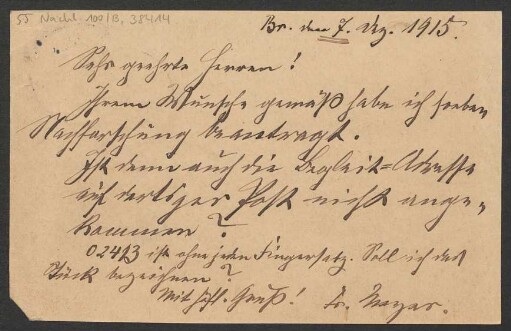 55 Nachl. 100/B, 38414
Br. den 7. Dez. 1915.
Sehr geehrte Herren!
Ihrem Wunsche gemäß habe ich soeben
Nachforschung beantragt.
Ist denn auch die Begleit=Adresse
auf dortiger Post nicht ange-
kommen?
02413 ist ohne jeden Fingersatz. Soll ich das
Stück bezeichnen?
Mit Gruß!